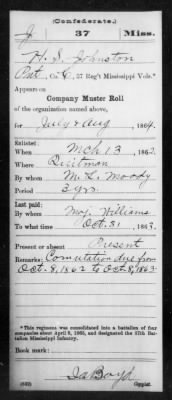 (Confederate.)
J 37 Miss.
H. S. Johnston
Pvt, Co. C, 37 Reg't Mississippi Vols.*
Appears on
Company Muster Roll
of the organization named above,
for July & Aug, 1864.
Enlisted:
When Mch 13, 1862.
Where Quitman
By whom M. L. Moody
Period 3 yrs.
Last paid:
By whom Maj. Williams
To what time Oct. 31, 1863.
Present or absent Present
Remarks: Comutation due from
Oct. 8, 1862 to Oct 8, 1863
*This regiment was consolidated into a battalion of four
companies about April 9, 1865, and designated the 37th Bat-
talion Mississippi Infantry.
Book mark:
Boyd
(642) Copyist.